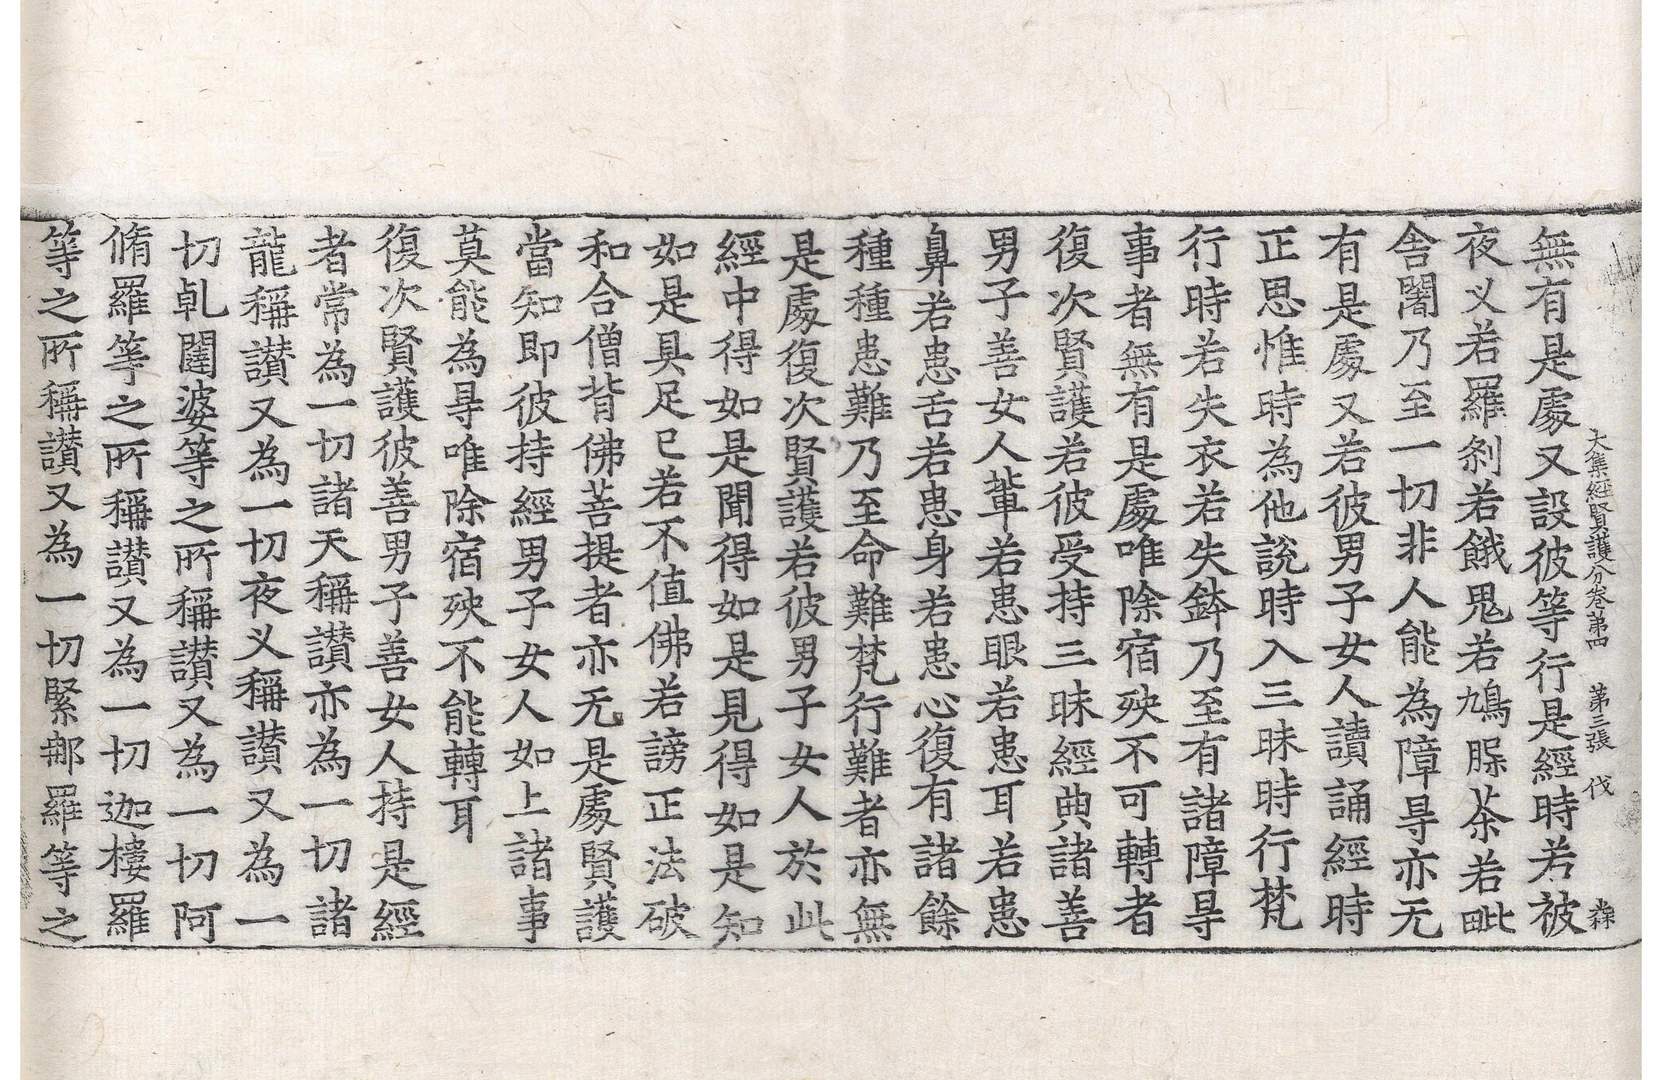 大集經賢護分卷第四 第三張 伐 森
無有是處又設彼等行是經時若被
夜义若羅剎若餓鬼若鳩腺茶若毗
舍闍乃至一切非人能為障㝵亦无
有是處又若彼男子女人讀誦經時
正思惟時為他說時入三昧時行梵
行時若失衣若失鉢乃至有諸障㝵
事者無有是處唯除宿殃不可轉者
復次賢護若彼受持三昧經典諸善
男子善女人輩若患眼若患耳若患
鼻若患舌若患身若患心復有諸餘
種種患難乃至命難梵行難者亦無
是處復次賢護若彼男子女人於此
經中得如是聞得如是見得如是知
如是具足已若不值佛若謗正法破
和合僧背佛菩提者亦无是處賢護
當知即彼持經男子女人如上諸事
莫能為㝵唯除宿殃不能轉耳
復次賢護彼善男子善女人持是經
者常為一切諸天稱讃亦為一切諸
龍稱讃又為一切夜义稱讃又為一
切乹闥婆等之所稱讃又為一切阿
脩羅等之所稱讃又為一切迦樓羅
等之所稱讃又為一切緊那羅等之